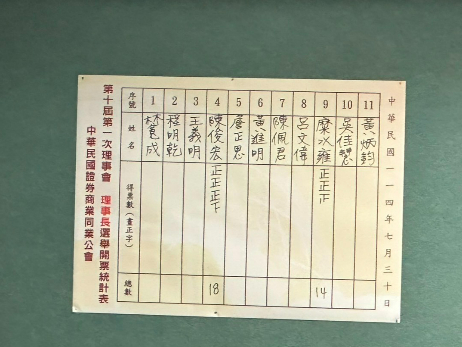 中華民國證券商業同業公會
第十屆第一次理事會 理事長選舉開票統計表
序號 1 2 3 4 5 6 7 8 9 10 11
姓名 程明乾 王義明 陳俊宏 詹正恩 黃進明 陳佩君 呂文偉 糜以雍 吳佳慧 黃炳鈞
得票數(畫正字) 正正正 正正正
總數 18 14
中華民國一一四年七月三十日